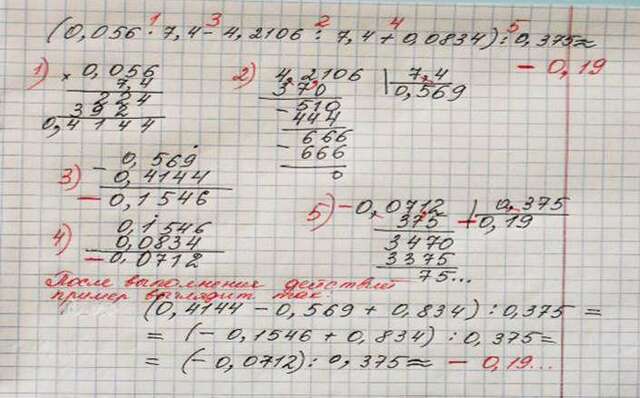 1 3 2 4 5
(0,056 · 7,4 - 4,2106 : 7,4 + 0,0834) : 0,375 ≈
- 0,19
1) × 0,056
7,4
224
392
0,4144
2) 4,2106 | 7,4
370 0,569
- 510
444
- 666
666
0
3) - 0,569
0,4144
- 0,1546
4) 0,1546
0,0834
- 0,0712
5) -0,0712 | 0,375
375 -0,19
3470
3375
75...
После выполнения действий
пример выглядит так:
(0,4144 - 0,569 + 0,834) : 0,375 =
= (- 0,1546 + 0,834) : 0,375 =
= (- 0,0712) : 0,375 ≈ - 0,19...